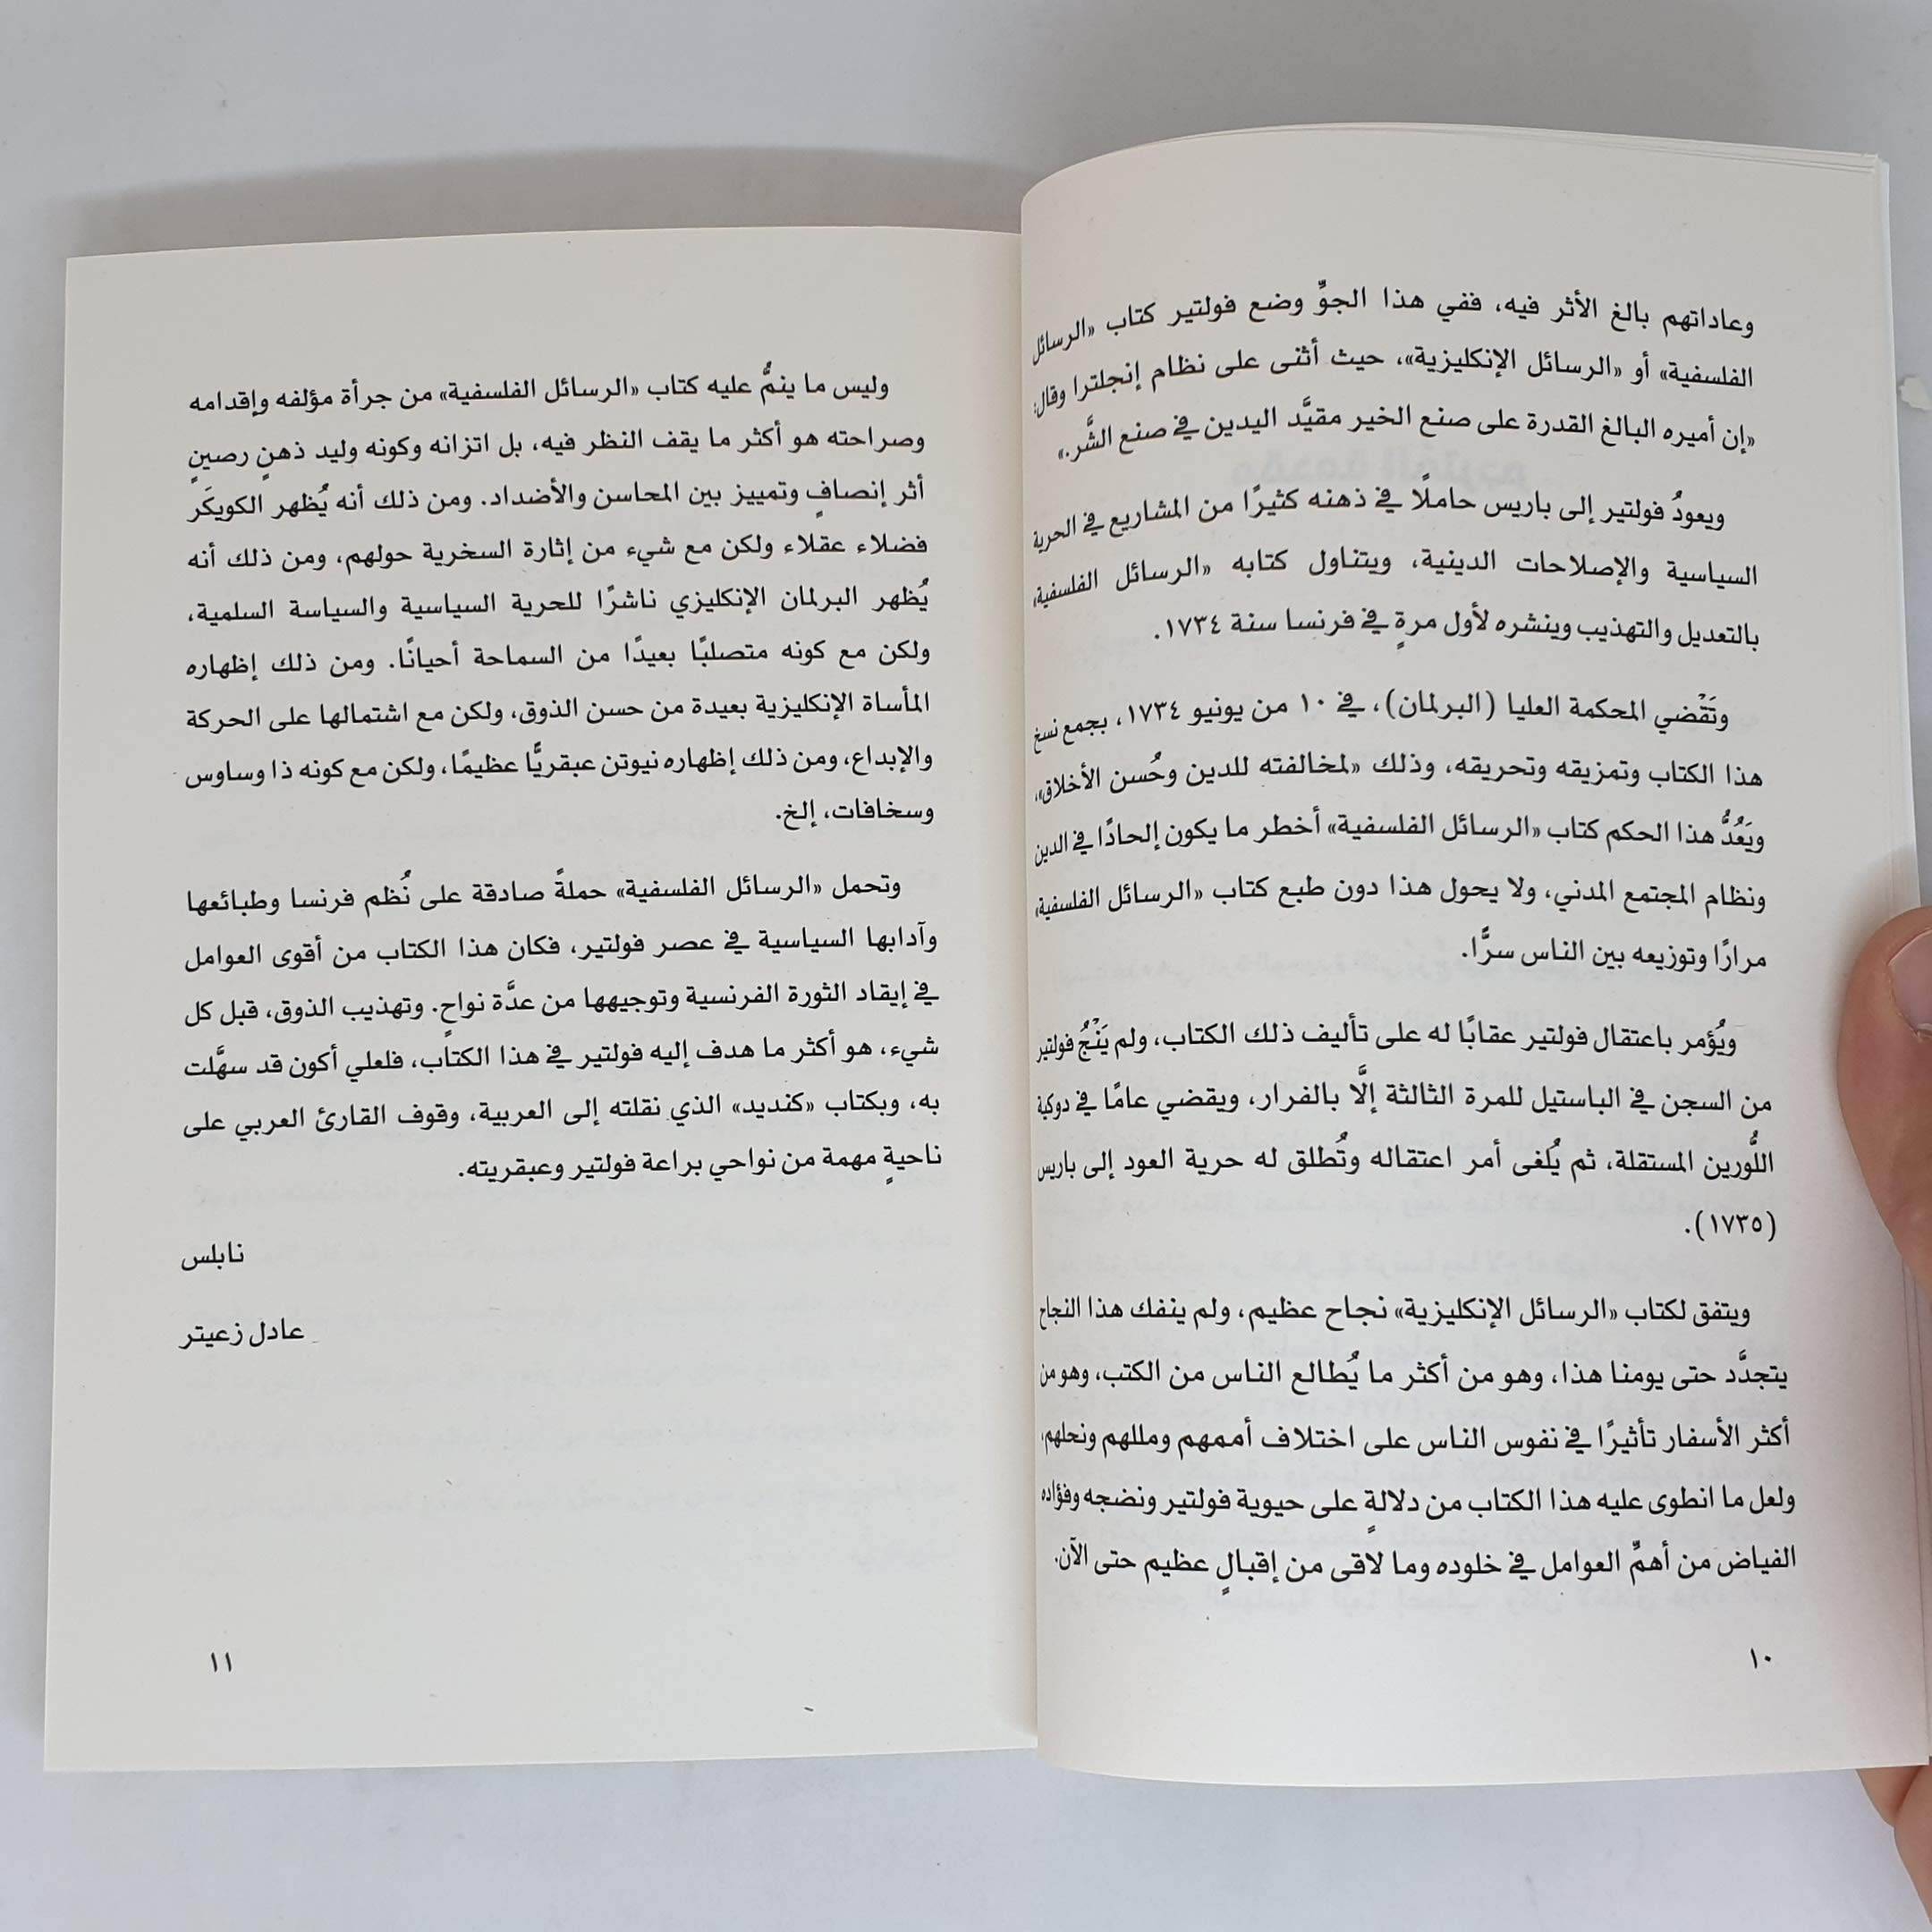 وعاداتهم بالغ الأثر فيه، ففي هذا الجوِّ وضع فولتير كتاب «الرسائل
الفلسفية» أو «الرسائل الإنكليزية»، حيث أثنى على نظام إنجلترا وقال:
«إن أميره البالغ القدرة على صنع الخير مقيَّد اليدين في صنع الشَّر.»
ويعودُ فولتير إلى باريس حاملًا في ذهنه كثيرًا من المشاريع في الحرية
السياسية والإصلاحات الدينية، ويتناول كتابه «الرسائل الفلسفية»
بالتعديل والتهذيب وينشره لأول مرةٍ في فرنسا سنة ١٧٣٤.
وتَقْضي المحكمة العليا (البرلمان)، في ١٠ من يونيو ١٧٣٤، بجمع نسخ
هذا الكتاب وتمزيقه وتحريقه، وذلك «لمخالفته للدين وحُسن الأخلاق»،
ويَعُدُّ هذا الحكم كتاب «الرسائل الفلسفية» أخطر ما يكون إلحادًا في الدين
ونظام المجتمع المدني، ولا يحول هذا دون طبع كتاب «الرسائل الفلسفية»
مرارًا وتوزيعه بين الناس سرًّا.
ويُؤمر باعتقال فولتير عقابًا له على تأليف ذلك الكتاب، ولم يَنْجُ فولتير
من السجن في الباستيل للمرة الثالثة إلَّا بالفرار، ويقضي عامًا في دوكية
اللُّورين المستقلة، ثم يُلغى أمر اعتقاله وتُطلق له حرية العود إلى باريس
(١٧٣٥).
ويتفق لكتاب «الرسائل الإنكليزية» نجاح عظيم، ولم ينفك هذا النجاح
يتجدَّد حتى يومنا هذا، وهو من أكثر ما يُطالع الناس من الكتب، وهو من
أكثر الأسفار تأثيرًا في نفوس الناس على اختلاف أممهم ومللهم ونحلهم،
ولعل ما انطوى عليه هذا الكتاب من دلالةٍ على حيوية فولتير ونضجه وفؤاده
الفياض من أهمِّ العوامل في خلوده وما لاقى من إقبالٍ عظيم حتى الآن.
١٠
وليس ما ينمُّ عليه كتاب «الرسائل الفلسفية» من جرأة مؤلفه وإقدامه
وصراحته هو أكثر ما يقف النظر فيه، بل اتزانه وكونه وليد ذهنٍ رصينٍ
أثر إنصافٍ وتمييز بين المحاسن والأضداد. ومن ذلك أنه يُظهر الكويكَر
فضلاء عقلاء ولكن مع شيء من إثارة السخرية حولهم، ومن ذلك أنه
يُظهر البرلمان الإنكليزي ناشرًا للحرية السياسية والسياسة السلمية،
ولكن مع كونه متصلبًا بعيدًا من السماحة أحيانًا. ومن ذلك إظهاره
المأساة الإنكليزية بعيدة من حسن الذوق، ولكن مع اشتمالها على الحركة
والإبداع، ومن ذلك إظهاره نيوتن عبقريًّا عظيمًا، ولكن مع كونه ذا وساوس
وسخافات، إلخ.
وتحمل «الرسائل الفلسفية» حملةً صادقة على نُظم فرنسا وطبائعها
وآدابها السياسية في عصر فولتير، فكان هذا الكتاب من أقوى العوامل
في إيقاد الثورة الفرنسية وتوجيهها من عدَّة نواحٍ. وتهذيب الذوق، قبل كل
شيء، هو أكثر ما هدف إليه فولتير في هذا الكتاب، فلعلي أكون قد سهَّلت
به، وبكتاب «كنديد» الذي نقلته إلى العربية، وقوف القارئ العربي على
ناحيةٍ مهمة من نواحي براعة فولتير وعبقريته.
نابلس
عادل زعيتر
١١